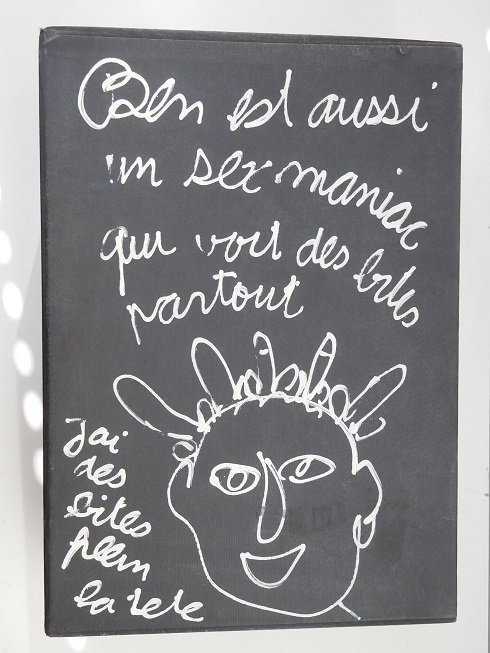 Ben est aussi
un sex maniac
qui voit des bites
partout
J'ai
des
bites
plein
la tete